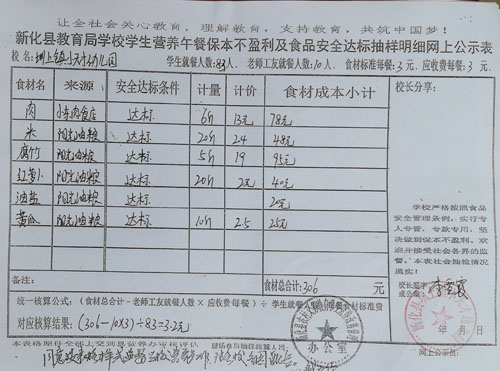 让全社会关心教育，理解教育，支持教育，共筑中国梦！
新化县教育局学校学生营养午餐保本不盈利及食品安全达标抽样明细网上公示表
校名：圳上镇小天才幼儿园 学生就餐人数：83人，老师工友就餐人数：10人，食材标准每餐：3元，应收费每餐：3元
食材名 来源 安全达标条件 计量 计价 食材成本小计 校长分享：
肉 食店 达标 6斤 13元 78元
米 阳光油粮 达标 20斤 2.4 48元
腐竹 阳光油粮 达标 5斤 19 95元
红萝卜 阳光油粮 达标 20斤 2元 40元
油盐 阳光油粮 达标 20元
黄瓜 阳光油粮 达标 10斤 2.5 25元
学校严格按照食品
安全管理条例，实行专
人专管，专款专用，坚
决做到保本不盈利，欢
迎并接受社会各界的监
督，本表社会抽检情况
属实！
备注： 食材总合计：306 元
校长签字
统一核算公式：（食材总合计-老师工友就餐人数×应收费每餐）÷学生就餐人数 食材标准费
对应核算结果：(306-10×3)÷83=3.2元
年 月 日
办公室
网上公示员：